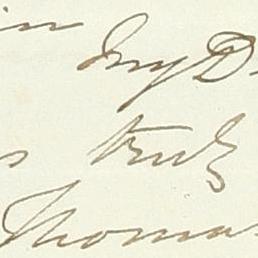 in my D
s truly
Thomas